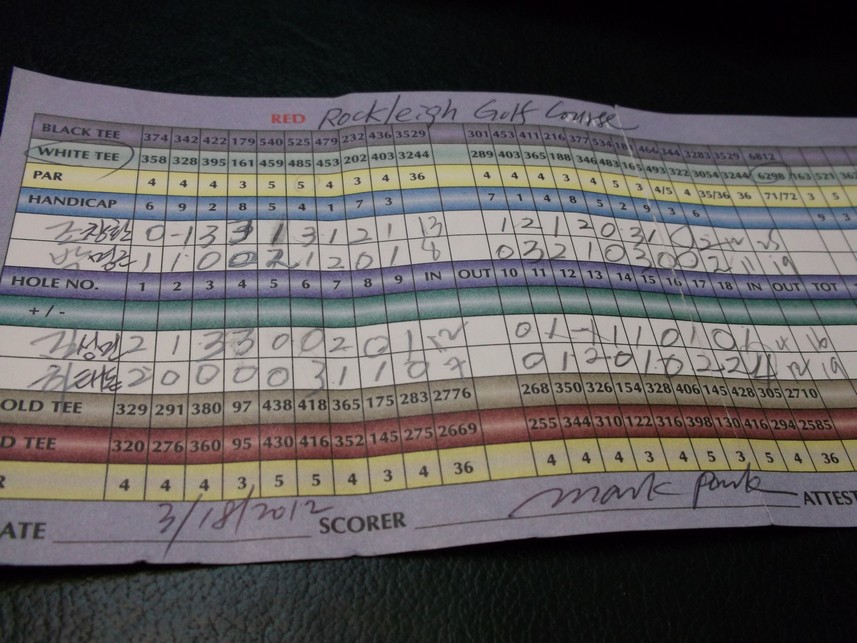 RED Rockleigh Golf Course
BLACK TEE 374 342 422 179 540 525 479 232 436 3529 301 453 411 216 377 534 181 466 344 3283 3529 6812
WHITE TEE 358 328 395 161 459 485 453 202 403 3244 289 403 365 188 346 483 165 493 322 3054 3244 6298 163 521 362
PAR 4 4 4 3 5 5 4 3 4 36 4 4 4 3 4 5 3 4/5 4 35/36 36 71/72 3 5
HANDICAP 6 9 2 8 5 4 1 7 3 7 1 4 8 5 2 9 3 6 9 3
0 -1 3 3 1 3 1 2 1 13 1 2 1 2 0 3 1 0 2
1 1 0 0 2 1 2 0 1 8 0 3 2 1 0 3 0 0 2 11 19
HOLE NO. 1 2 3 4 5 6 7 8 9 IN OUT 10 11 12 13 14 15 16 17 18 IN OUT TOT
+ / -
2 1 3 3 0 0 2 0 1 12 0 1 -1 1 1 0 1 0 1 4 16
2 0 0 0 0 3 1 1 0 7 0 1 2 0 1 0 2 2 4 12 19
OLD TEE 329 291 380 97 438 418 365 175 283 2776 268 350 326 154 328 406 145 428 305 2710
D TEE 320 276 360 95 430 416 352 145 275 2669 255 344 310 122 316 398 130 416 294 2585
R 4 4 4 3 5 5 4 3 4 36 4 4 4 3 4 5 3 5 4 36
ATE 3/18/2012 SCORER mark park ATTEST